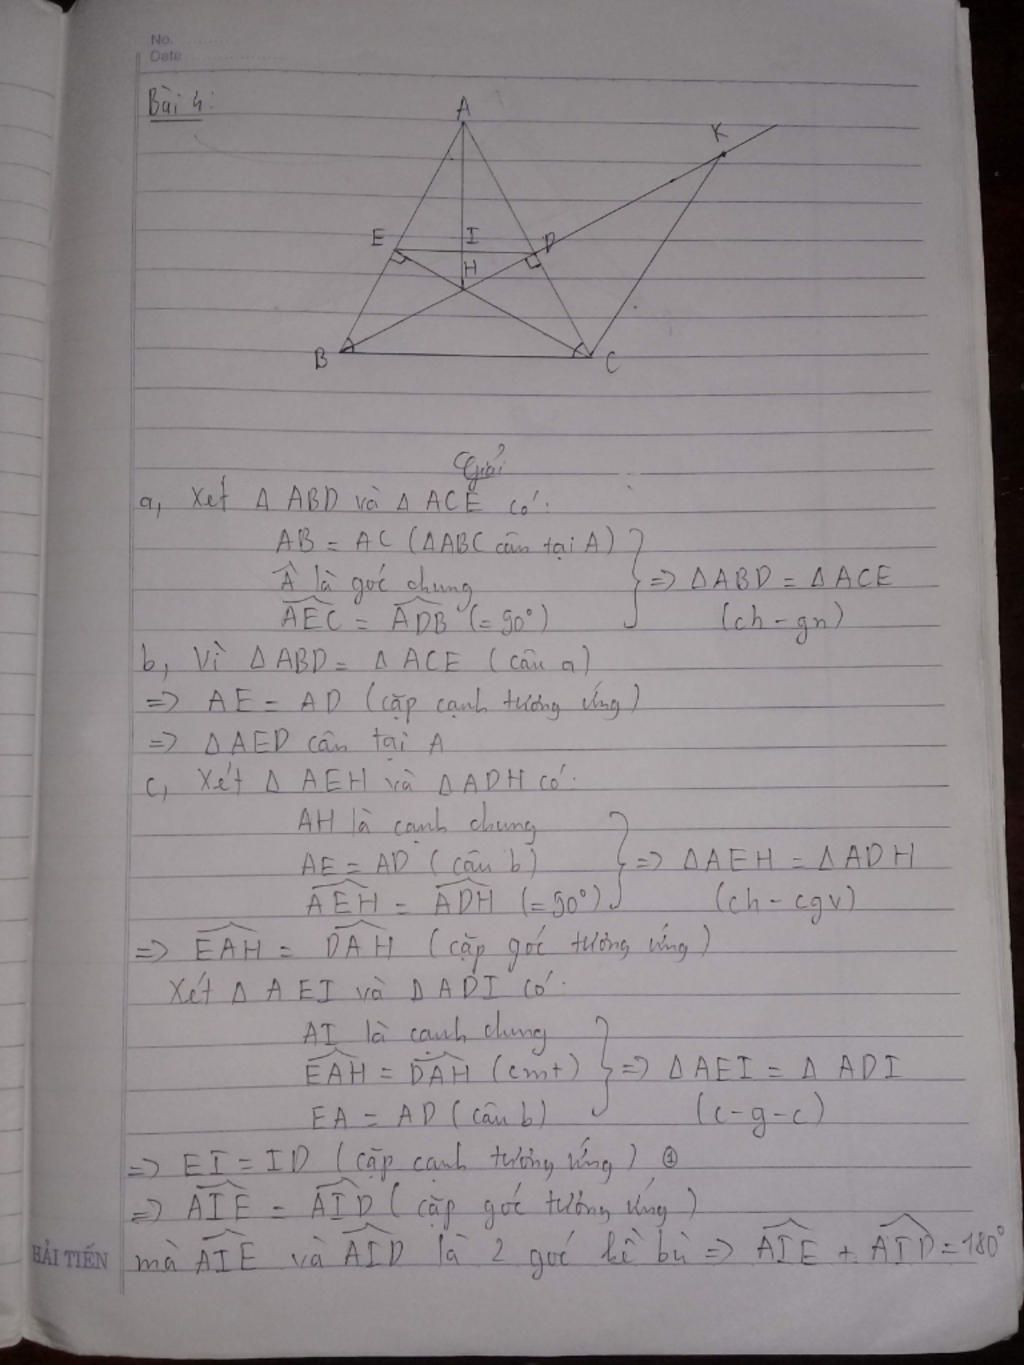 No.
Date
Bài 4:
A
K
E
I
D
H
B
C
Giải
a, Xét Δ ABD và Δ ACE có:
AB = AC (ΔABC cân tại A)
Â là góc chung
⇒ ΔABD = ΔACE
AEC = ADB (= 90°)
(ch - gn)
b, Vì Δ ABD = Δ ACE (câu a)
⇒ AE = AD (cặp cạnh tương ứng)
⇒ ΔAED cân tại A
c, Xét Δ AEH và ΔADH có:
AH là cạnh chung
AE = AD (câu b)
⇒ ΔAEH = ΔADH
AEH = ADH (= 90°)
(ch - cgv)
⇒ EAH = DAH (cặp góc tương ứng)
Xét Δ AEI và Δ ADI có:
AI là cạnh chung
EAH = DAH (cmt)
⇒ Δ AEI = Δ ADI
EA = AD (câu b)
(c-g-c)
⇒ EI = ID (cặp cạnh tương ứng) ①
⇒ AIE = AID (cặp góc tương ứng)
HẢI TIẾN
mà AIE và AID là 2 góc kề bù ⇒ AIE + AID = 180°